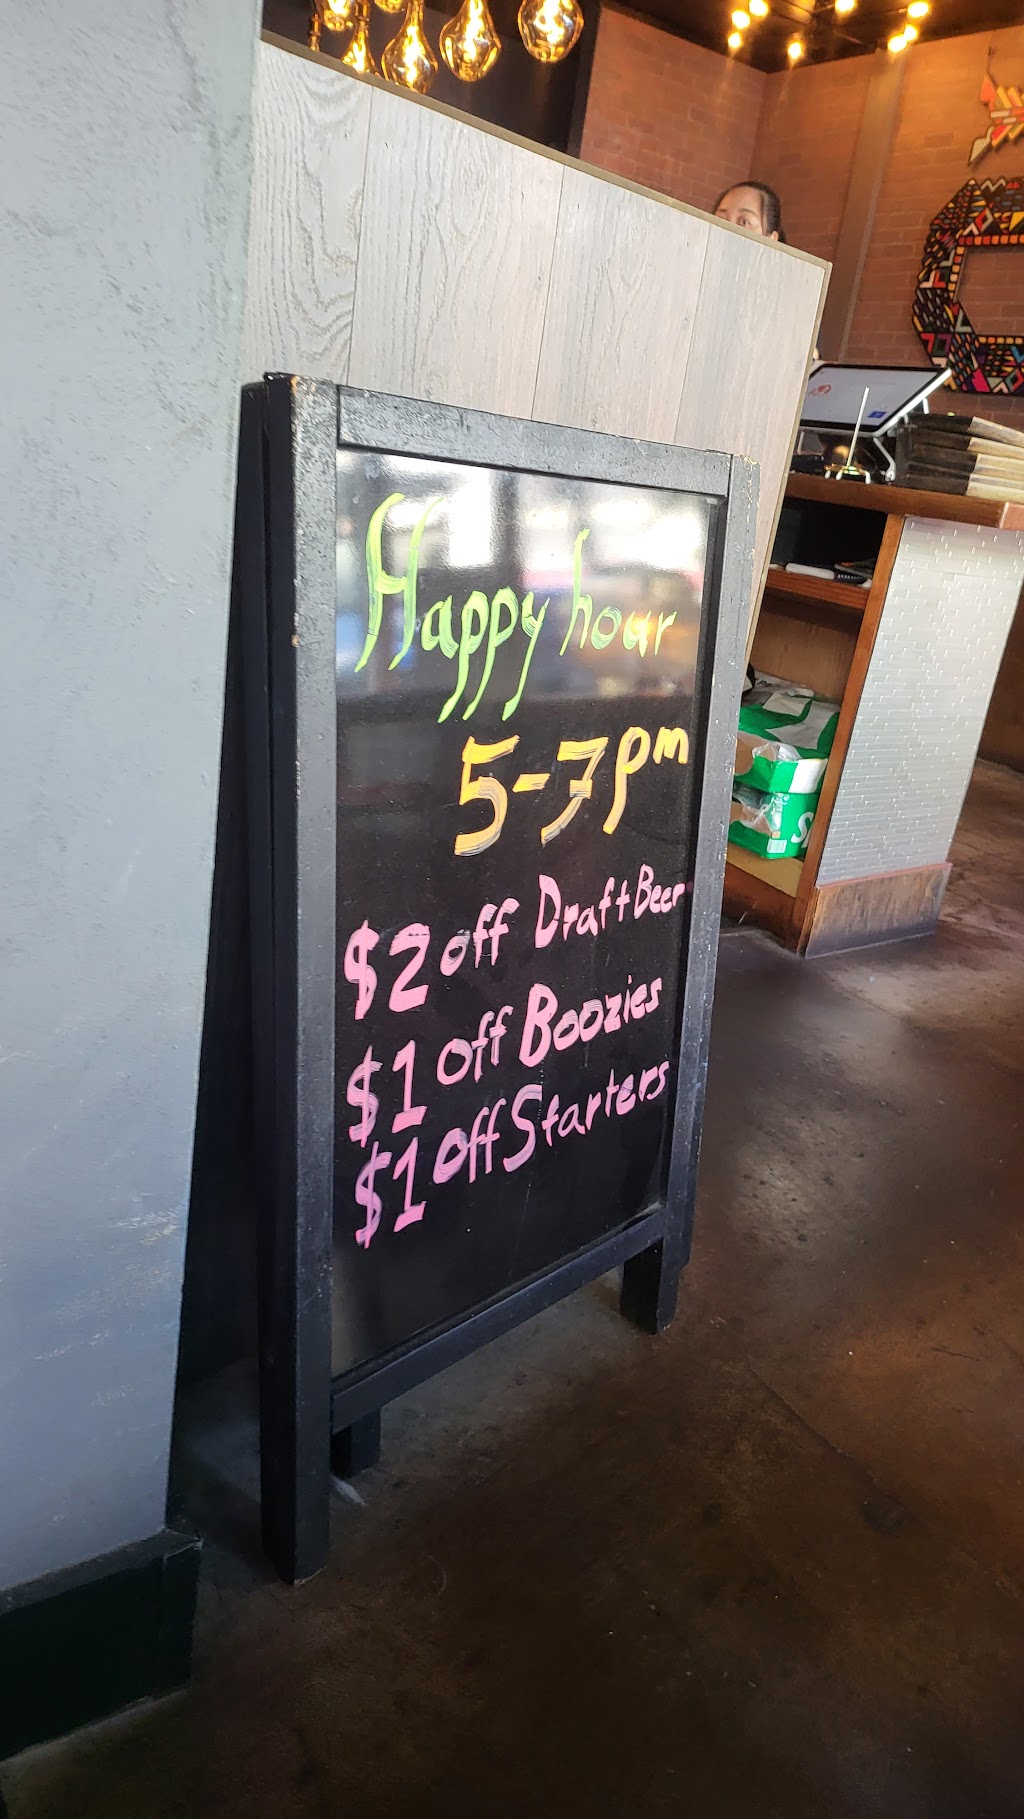 Happy hour
5-7pm
$2 off Draft Beer
$1 off Boozies
$1 off Starters